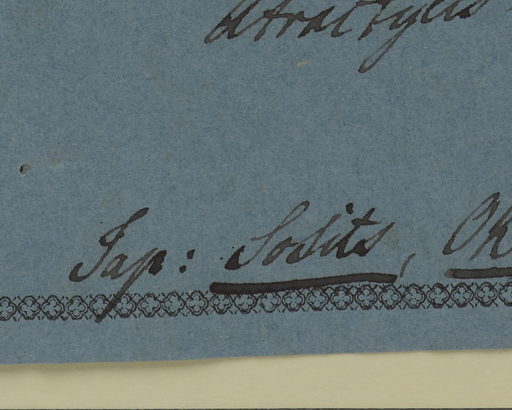 Atractylis
Jap: Sosits, Ok